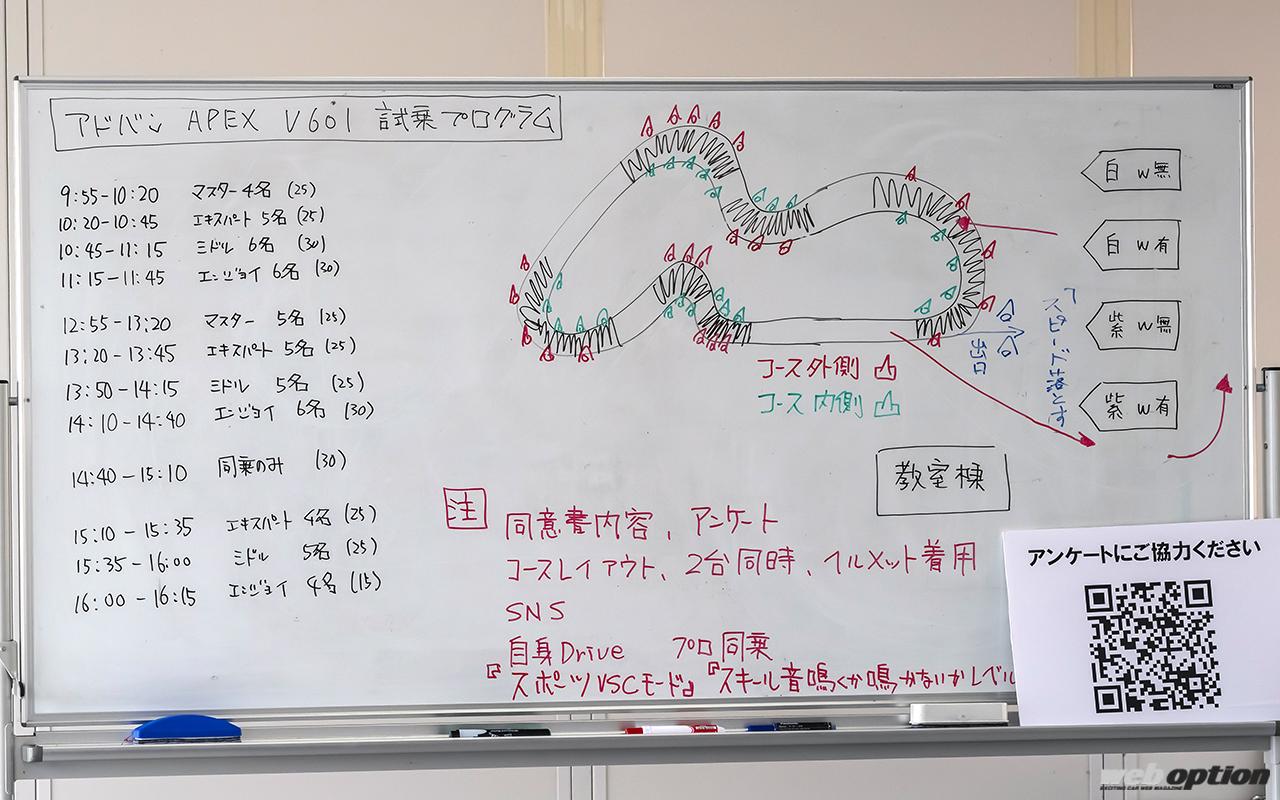 アドバン APEX V601 試乗プログラム
9:55-10:20 マスター4名 (25)
10:20-10:45 エキスパート 5名 (25)
10:45-11:15 ミドル 6名 (30)
11:15-11:45 エンジョイ 6名 (30)
12:55-13:20 マスター 5名 (25)
13:20-13:45 エキスパート 5名 (25)
13:50-14:15 ミドル 5名 (25)
14:10-14:40 エンジョイ 6名 (30)
14:40-15:10 同乗のみ (30)
15:10-15:35 エキスパート 4名 (25)
15:35-16:00 ミドル 5名 (25)
16:00-16:15 エンジョイ 4名 (15)
コース外側
コース内側
出口
スピード落とす
白 W無
白 W有
紫 W無
紫 W有
教室棟
注
同意書内容, アンケート
コースレイアウト、2台同時、ヘルメット着用
SNS
自身Drive プロ同乗
『スポーツVSCモード』『スキール音鳴くか鳴かないかレベル
アンケートにご協力ください
web option
EXCITING CAR WEB MAGAZINE